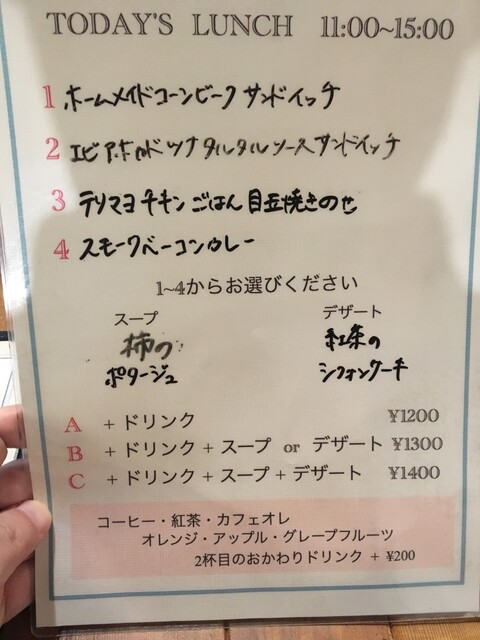 TODAY'S LUNCH 11:00~15:00
1 ホームメイドコーンビーフ サンドイッチ
2 エビアボカドツナタルタルソースサンドイッチ
3 テリマヨチキンごはん目玉焼きのせ
4 スモークベーコンカレー
1~4からお選びください
スープ
柿の
ポタージュ
デザート
紅茶の
シフォンケーキ
A + ドリンク ¥1200
B + ドリンク + スープ or デザート ¥1300
C + ドリンク + スープ + デザート ¥1400
コーヒー・紅茶・カフェオレ
オレンジ・アップル・グレープフルーツ
2杯目のおかわりドリンク + ¥200